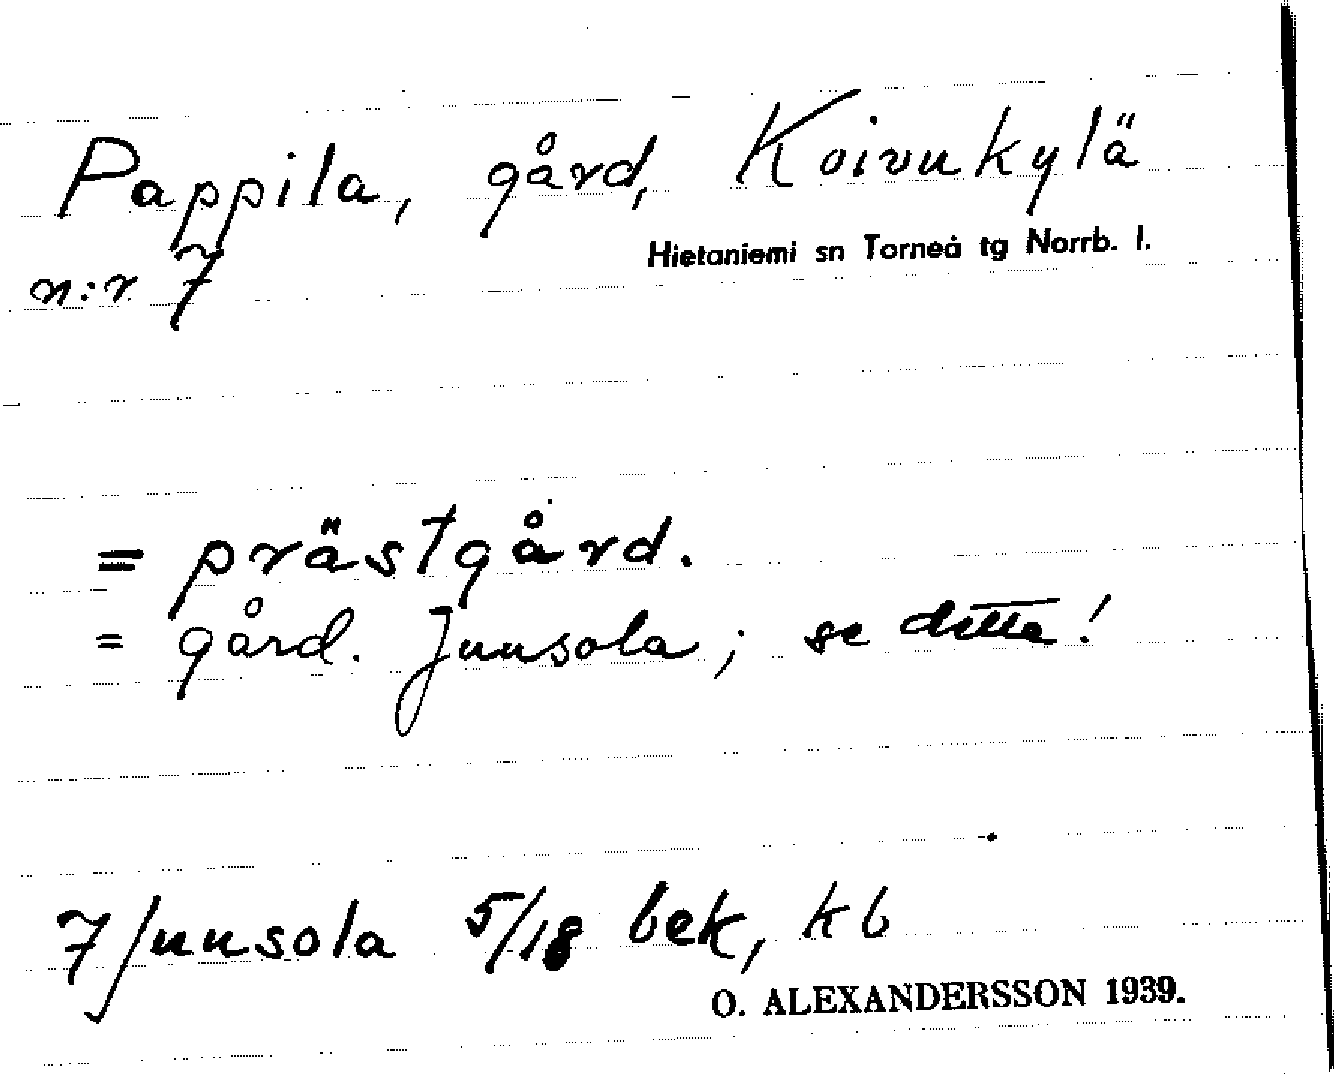 Pappila, gård, Koivukylä
Hietaniemi sn Torneå tg Norrb. l.
n:r 7
= prästgård.
= gård. Juusola; se detta!
7 Juusola 5/18 bek, kb
O. ALEXANDERSSON 1939.